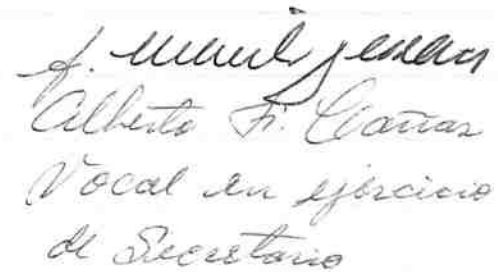 Alberto F. Cañas
Vocal en ejercicio
de Secretario